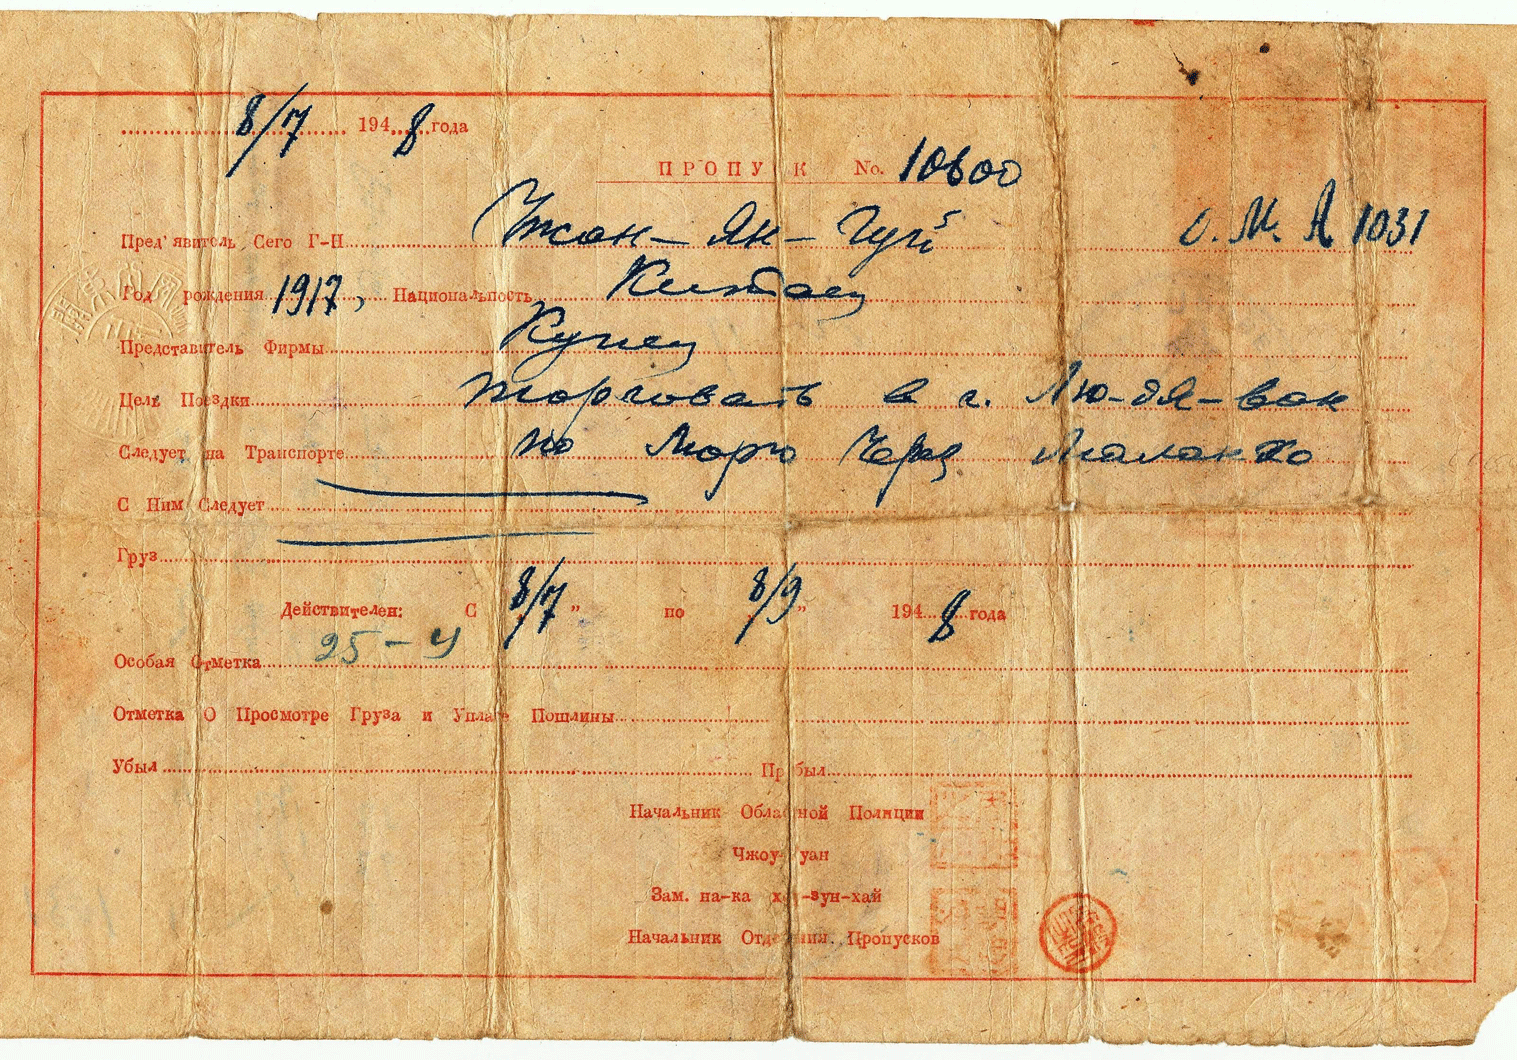 8/7 1948 года
ПРОПУСК No. 10600
Пред'явитель Сего Г-Н Чжан-Ян-Гуй О.М.Я 1031
Год рождения 1917, Национальность Китаец
Представитель Фирмы Купец
Цель Поездки торговать в г. Лю-дя-ван
Следует на Транспорте по морю через
С Ним Следует
Груз
Действителен: С 8/7 " по 8/9 " 1948 года
25-4
Особая Отметка
Отметка О Просмотре Груза и Уплате Пошлины
Убыл Прибыл
Начальник Областной Полиции
Чжоу- уан
Зам. на-ка -зун-хай
Начальник Отделения Пропусков